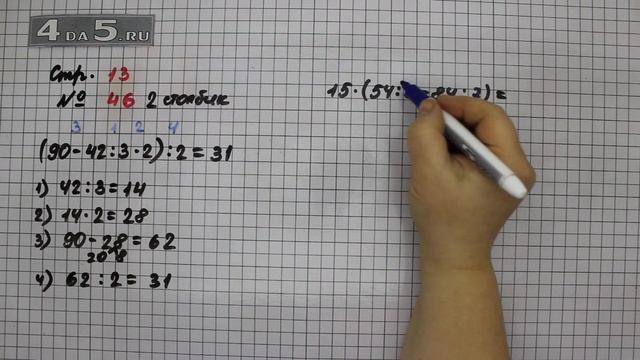 4 DA 5.RU
Стр. 13
№ 46 2 столбик
3 1 2 4
(90-42:3·2):2=31
1) 42:3=14
2) 14·2=28
3) 90-28=62
20 8
4) 62:2=31
15·(54: 84: )=